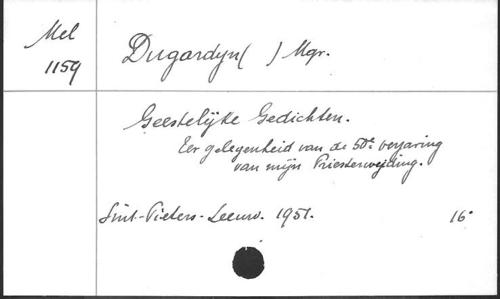 Mel
1159
Dugardyn ( ) Mgr.
Geestelijke Gedichten.
Ter gelegenheid van de 50e verjaring
van mijn Priesterwijding.
Sint-Pieters-Leeuw. 1951.
16°